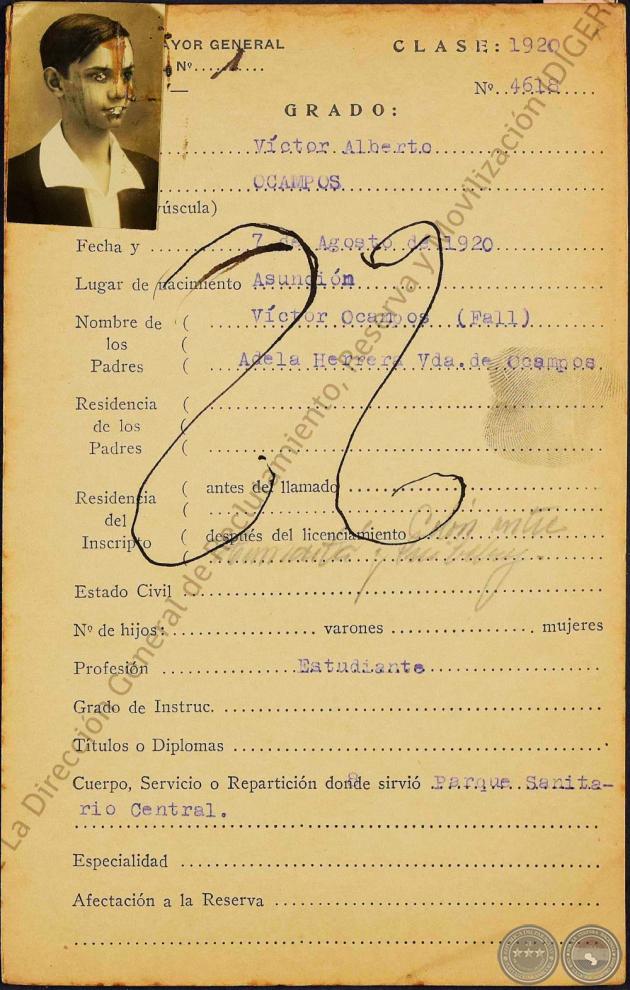 AYOR GENERAL
CLASE: 1920
Nº. 1
Nº 4618
GRADO:
Víctor Alberto
OCAMPOS
yúscula)
Fecha y 7 de Agosto de 1920
Lugar de nacimiento Asunción
Nombre de los Padres ( Víctor Ocampos (Fall)
( Adela Herrera Vda. de Ocampos
Residencia de los Padres
Residencia del Inscripto ( antes del llamado
( después del licenciamiento
Estado Civil
Nº de hijos: varones mujeres
Profesión Estudiante
Grado de Instruc.
Títulos o Diplomas
Cuerpo, Servicio o Repartición donde sirvió Parque Sanita-
rio Central.
Especialidad
Afectación a la Reserva
La Dirección General de Reclutamiento, Reserva y Movilización (DIGER